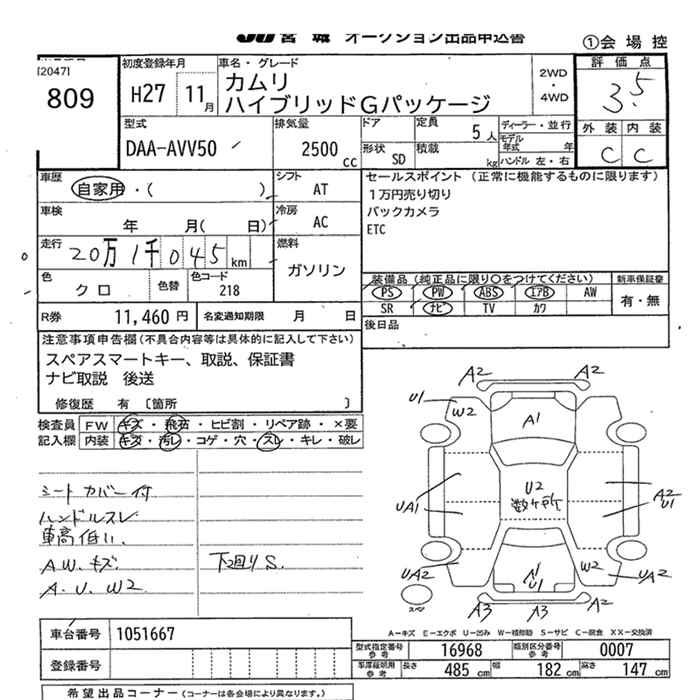 JU 宮城 オークション出品申込書
①会場控
[2047]
809
初度登録年月
H27 11月
車名・グレード
カムリ
ハイブリッドGパッケージ
2WD
・
4WD
評価点
3.5
外装 内装
C C
型式
DAA-AVV50
排気量
2500 cc
ドア
定員 5人
形状 SD
積載 kg
ディーラー・並行
モデル年式 年
ハンドル 左・右
車歴
自家用・( )
シフト
AT
セールスポイント (正常に機能するものに限ります)
1万円売り切り
バックカメラ
ETC
車検
年 月( 日)
冷房
AC
走行
20万1千045km
燃料
ガソリン
色
クロ
色替
色コード
218
装備品(純正品に限り○をつけてください)
新車保証書
PS PW ABS エアB AW
SR ナビ TV カワ
有・無
R券 11,460円
名変通知期限 月 日
後日品
注意事項申告欄(不具合内容等は具体的に記入して下さい)
スペアスマートキー、取説、保証書
ナビ取説 後送
修復歴 有 〔箇所
検査員記入欄
FW キズ・飛石・ヒビ割・リペア跡・×要
内装 キズ・汚レ・コゲ・穴・スレ・キレ・破レ
シートカバー付
ハンドルスレ
車高低い、
A.W.キズ 下廻りS.
A.U.W2
A2 A2
U1 W2
A1
UA1
U2
数ヶ所
A2
U1
UA2
A1
U1
W2
UA2
スペア
A3 A3 A2
A-キズ E-エクボ U-凹み W-補修跡 S-サビ C-腐食 XX-交換済
車台番号 1051667
登録番号
型式指定番号参考 16968
類別区分番号参考 0007
車庫証明用参考 長さ 485cm 幅 182cm 高さ 147cm
希望出品コーナー (コーナーは各会場により異なります。)